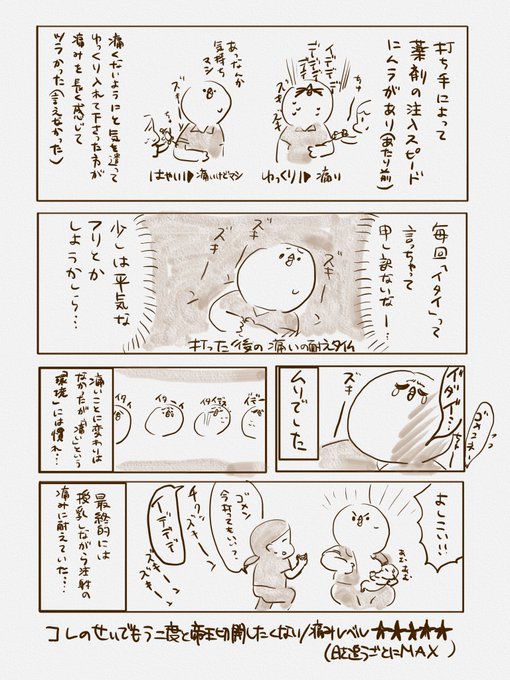 打ち手によって
薬剤の注入スピード
にムラがあり(あたり前)
イデデデ
デデデデ
ズキ
ズキ
ゆっくり▶痛い
あっなんか
気持ち
マシ
ズキ
ズキ
はやい▶痛いけどマシ
痛くないようにと気を遣って
ゆっくり入れて下さった方が
痛みを長く感じて
ツラかった(言えなかった)
毎回「イタイ」って
言っちゃって
申し訳ないなー…
ズキーン
ズキーン
ズキーン
打った後の痛いの耐えタイム
少しは平気な
フリとか
しようかしら…
イダイ…
ゴメンネー
ズキ
ムリでした
イデー
イタイ
イタイ
イタイ
痛いことに変わりは
なかったが「痛い」という
「環境」には慣れ…
よしこい!!
あむあむ
ゴメン
今打ってもいい?
チクッ
ズキーン
ズキーン
ズキーン
イデデデデ
最終的には
授乳しながら注射の
痛みに耐えていた…
コレのせいでもう二度と帝王切開したくない/痛みレベル★★★★★
(日を追うごとにMAX)